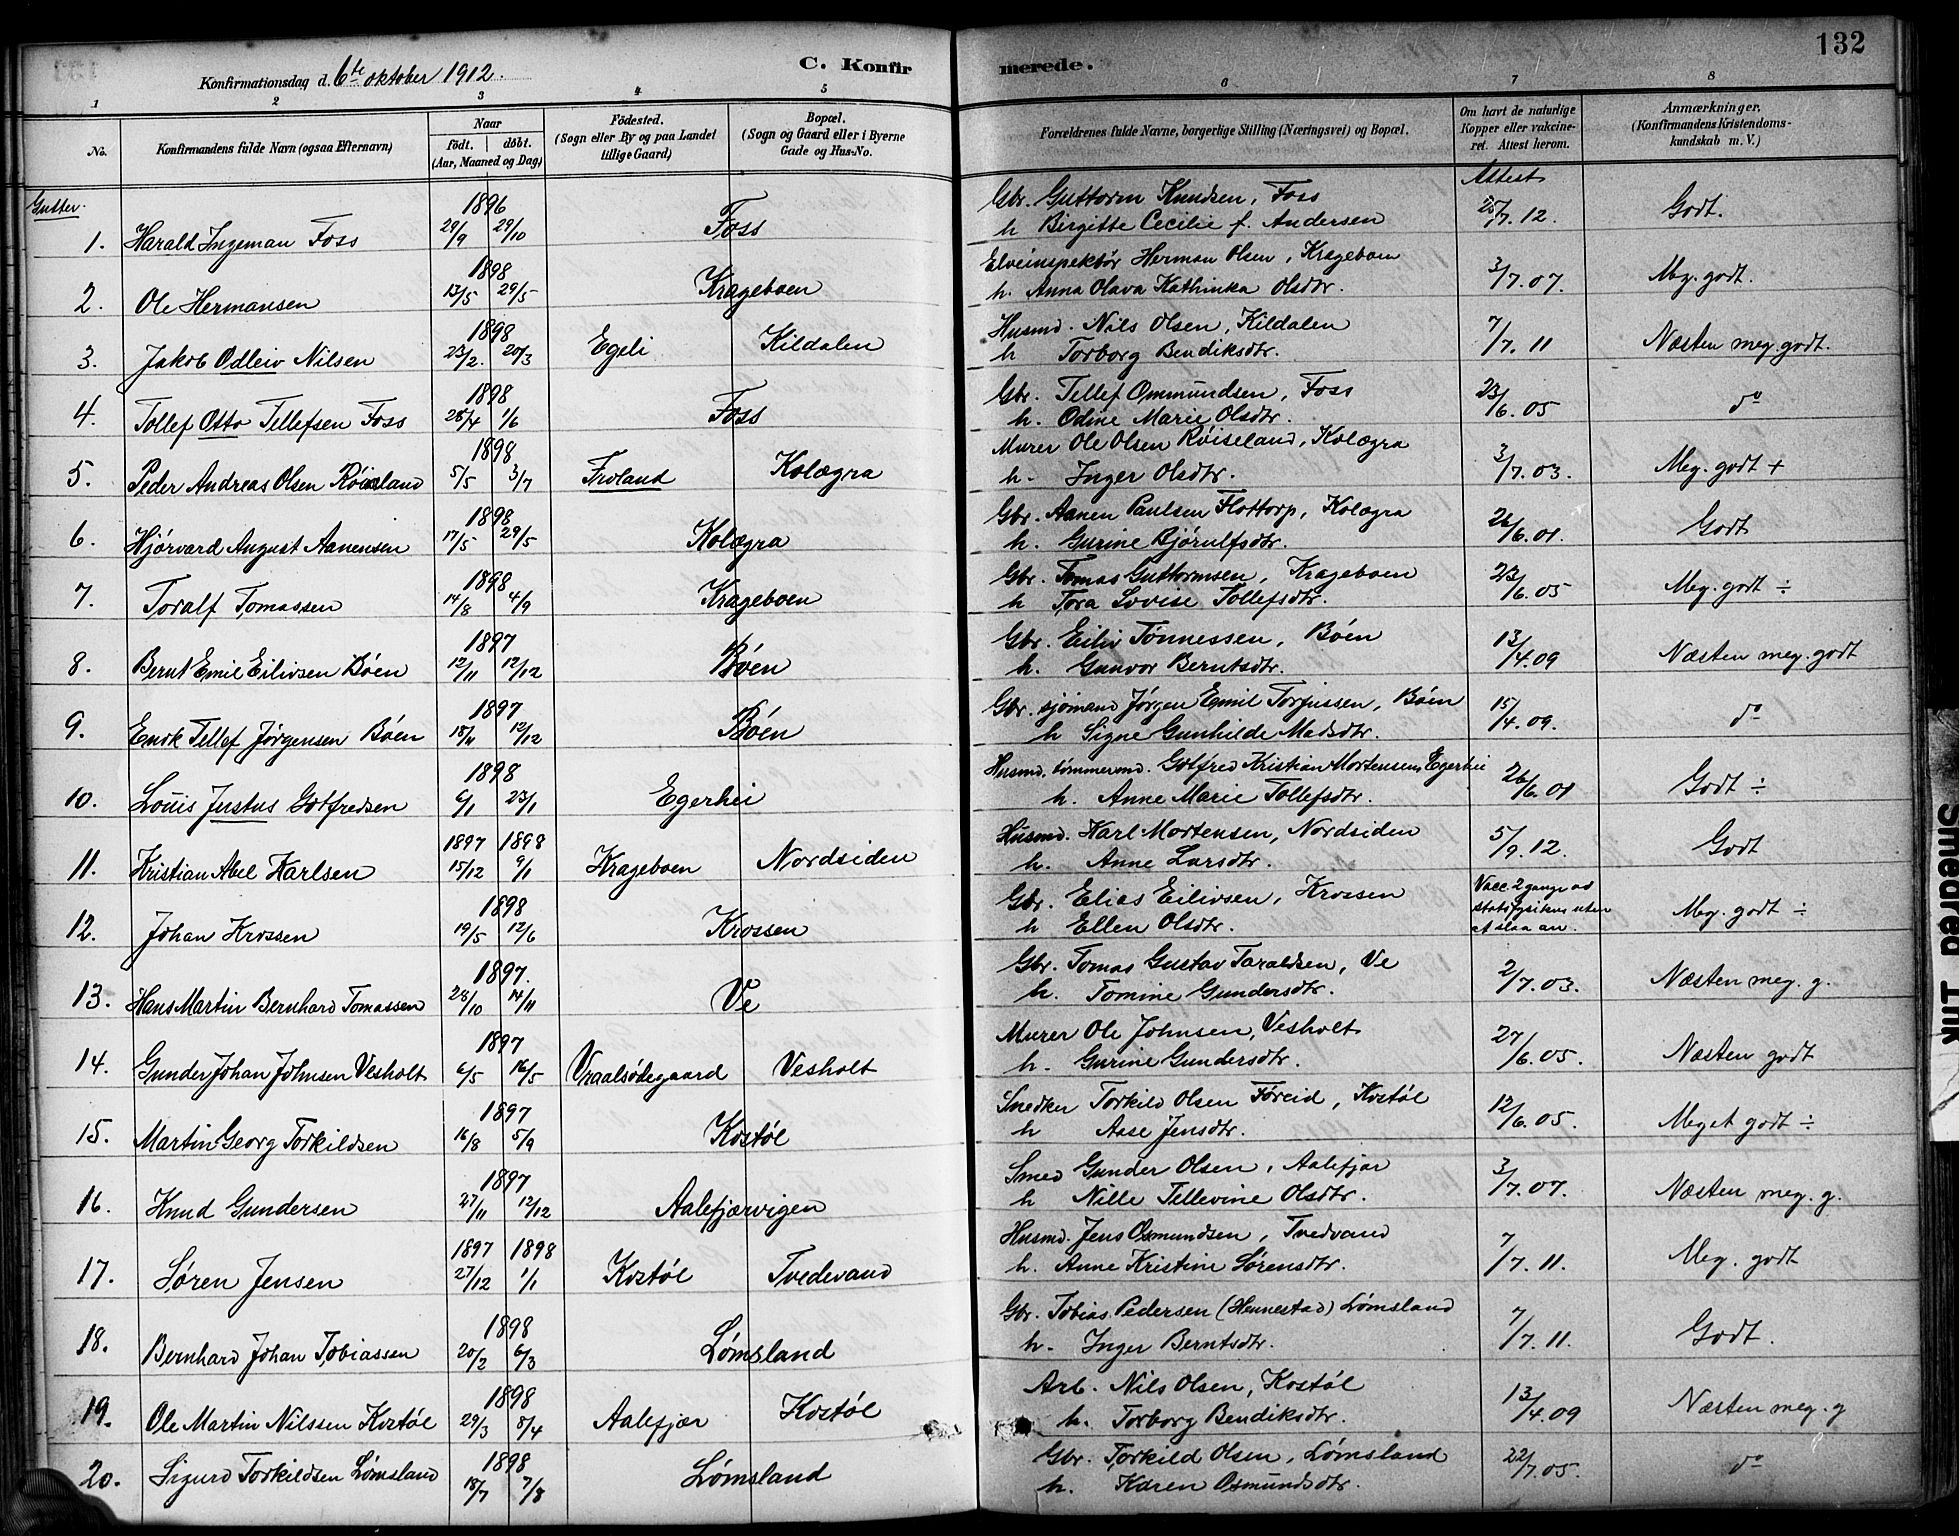 132
C. Konfir merede.
Konfirmationsdag d. 6te oktober 1912.
1 2 3 4 5 6 7 8
No. Konfirmandens fulde Navn (ogsaa Efternavn) Naar født. døbt. (Aar, Maaned og Dag) Fødested. (Sogn eller By og paa Landet tillige Gaard) Bopæl. (Sogn og Gaard eller i Byerne Gade og Hus-No. Forældrenes fulde Navne, borgerlige Stilling (Næringsvei) og Bopæl. Om havt de naturlige Kopper eller vakcineret. Attest herom. Anmærkninger. (Konfirmandens Kristendomskundskab m. V.)
Gutter. Attest
1. Harald Ingeman Foss 1896 29/9 29/10 Foss Gbr. Guttorm Knudsen, Foss 25/7. 12. Godt.
h Birgitte Cecilie f. Andersen
2. Ole Hermansen 1898 13/5 29/5 Krageboen Elveinspektør Herman Olsen, Krageboen 3/7. 07. Meg. godt.
h. Anna Olava Kathinka Olsdtr.
3. Jakob Odleiv Nilsen 1898 23/2. 20/3 Egeli Kildalen Husmd. Nils Olsen, Kildalen 7/7. 11 Næsten meg. godt.
h Torborg Bendiksdtr.
4. Tollef Otto Tellefsen Foss 1898 28/4 1/6 Foss Gbr. Tellef Ommundsen, Foss 23/6. 05 do
h. Odine Marie Olsdtr.
5. Peder Andreas Olsen Røisland 1898 5/5 3/7 Froland Kolægra Murer Ole Olsen Røiseland, Kolægra 3/7. 03. Meg. godt +
h. Inger Olsdtr.
6. Hjørvard August Aanensen 1898 17/5 29/5 Kolægra Gbr. Aanen Paulsen Flottorp, Kolægra 26/6. 01. Godt
h. Gurine Bjørulfsdtr.
7. Toralf Tomassen 1898 14/8 4/9 Krageboen Gbr. Tomas Guttormsen, Krageboen 23/6. 05 Meg. godt ÷
h Tora Lovise Tollefsdtr.
8. Bernt Emil Eilivsen Bøen 1897 12/11 12/12 Bøen Gbr. Eiliv Tønnessen, Bøen 13/4. 09 Næsten meg. godt
h. Gunvor Berntsdtr.
9. Enok Tellef Jørgensen Bøen 1897 18/11 12/12 Bøen Gbr. sjømand Jørgen Emil Torjussen, Bøen 15/4. 09. do
h Signe Gunhilde Madsdtr.
10. Louis Justus Gotfredsen 1898 6/1 23/1 Egerhei Husmd. tømmermd. Gotfred Kristian Mortensen, Egerhei 26/6. 01 Godt ÷
h. Anne Marie Tollefsdtr.
11. Kristian Abel Karlsen 1897 1898 15/12 9/1 Krageboen Nordsiden Husmd. Karl Mortensen, Nordsiden 5/9. 12. Godt
h. Anne Larsdtr.
12. Johan Krossen 1898 19/5 12/6 Krossen Gbr. Elias Eilivsen, Krossen Vacc. 2 gange av statsfysikus uten at slaa an. Meg. godt ÷
h Ellen Olsdtr.
13. Hans Martin Bernhard Tomassen 1897. 28/10 14/11 Ve Gbr. Tomas Gustav Taraldsen, Ve 2/7. 03. Næsten meg. g.
h. Tomine Gundersdtr.
14. Gunder Johan Johnsen Vesholt 1897 6/5 16/5 Vraalsødegaard Vesholt Murer Ole Johnsen, Vesholt 27/6. 05. Næsten godt
h. Gurine Gundersdtr.
15. Martin Georg Torkildsen 1897 16/8 5/9 Kostøl Snedker Torkild Olsen Føreid, Kostøl 12/6. 05. Meget godt ÷
h Aase Jensdtr.
16. Knud Gundersen 1897 27/11 12/12 Aalefjærvigen Smed Gunder Olsen, Aalefjær 3/7. 07. Næsten meg. g.
h Nille Tellevine Olsdtr.
17. Søren Jensen 1897 1898 27/12 1/1 Kostøl Tvedevand Husmd. Jens Osmundsen, Tvedvand 7/7. 11. Meg. godt
h. Anne Kristine Sørensdtr.
18. Bernhard Johan Tobiassen 1898 20/2 6/3 Lømsland Gbr. Tobias Pedersen (Hennestad) Lømsland 7/7. 11. Godt.
h. Inger Berntsdtr.
19. Ole Martin Nilssen Kostøl 1898 29/3 8/4 Aalefjær Kostøl Arb. Nils Olsen, Kostøl 13/4. 09 Næsten meg. g
h. Torborg Bendiksdtr.
20. Sigurd Torkildsen Lømsland 1898 18/7 7/8 Lømsland Gbr. Torkild Olsen, Lømsland 22/7. 05. do
h. Karen Osmundsdtr.